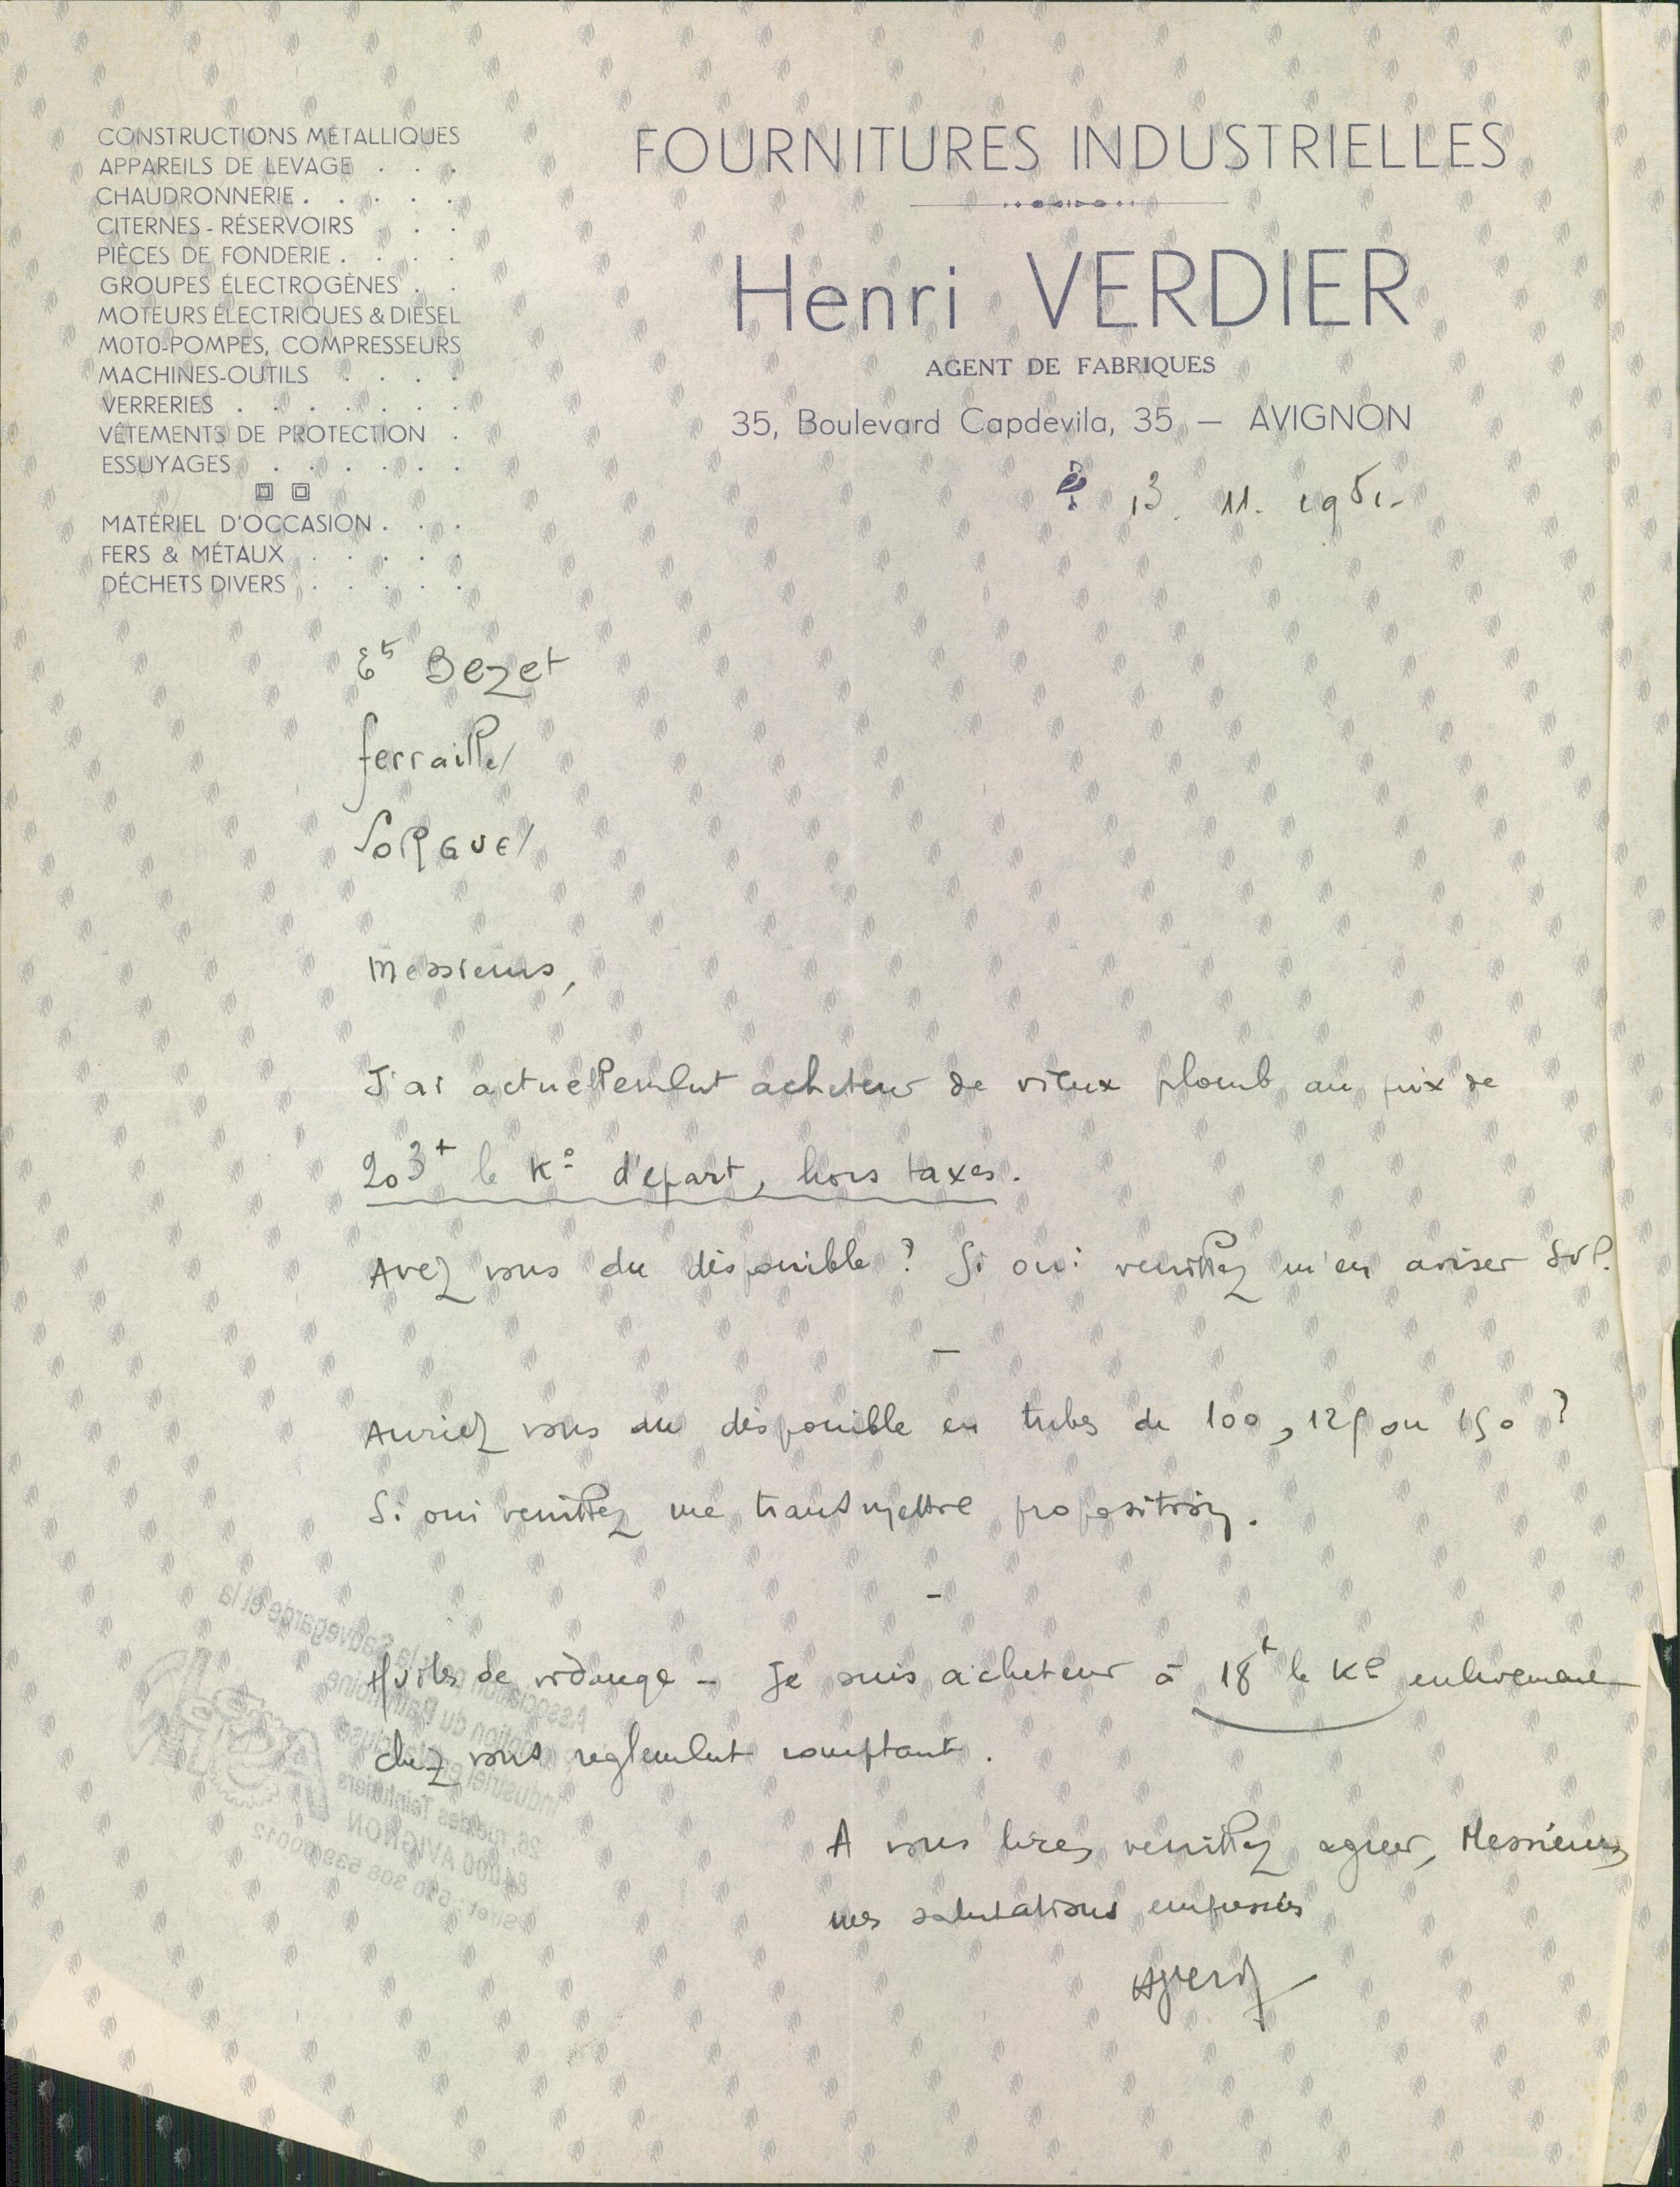 CONSTRUCTIONS MÉTALLIQUES
APPAREILS DE LEVAGE . . .
CHAUDRONNERIE . . . . .
CITERNES - RÉSERVOIRS . . .
PIÈCES DE FONDERIE . . . .
GROUPES ÉLECTROGÈNES . .
MOTEURS ÉLECTRIQUES & DIESEL
MOTO-POMPES, COMPRESSEURS
MACHINES-OUTILS . . . .
VERRERIES . . . . . . .
VÊTEMENTS DE PROTECTION .
ESSUYAGES . . . . . .
MATÉRIEL D'OCCASION . . .
FERS & MÉTAUX . . . . .
DÉCHETS DIVERS . . . . .
FOURNITURES INDUSTRIELLES
Henri VERDIER
AGENT DE FABRIQUES
35, Boulevard Capdevila, 35 — AVIGNON
13. 11. 1951-
Ets Bezet
ferrailles
SORGUES
Messieurs,
J'ai actuellement acheteur de vieux plomb au prix de
203f le Ko départ, hors taxes.
Avez vous du disponible ? Si oui veuillez m'en aviser SVP.
—
Auriez vous du disponible en tubes de 100, 125 ou 150 ?
Si oui veuillez me transmettre proposition.
-
Huiles de vidange - Je suis acheteur à 18f le Ko enlèvement
chez vous reglement comptant.
A vous lire, veuillez agreer, Messieurs,
mes salutations empressées
Association pour la Sauvegarde et la
Promotion du Patrimoine
Industriel en Vaucluse
26, rue des Teinturiers
84000 AVIGNON